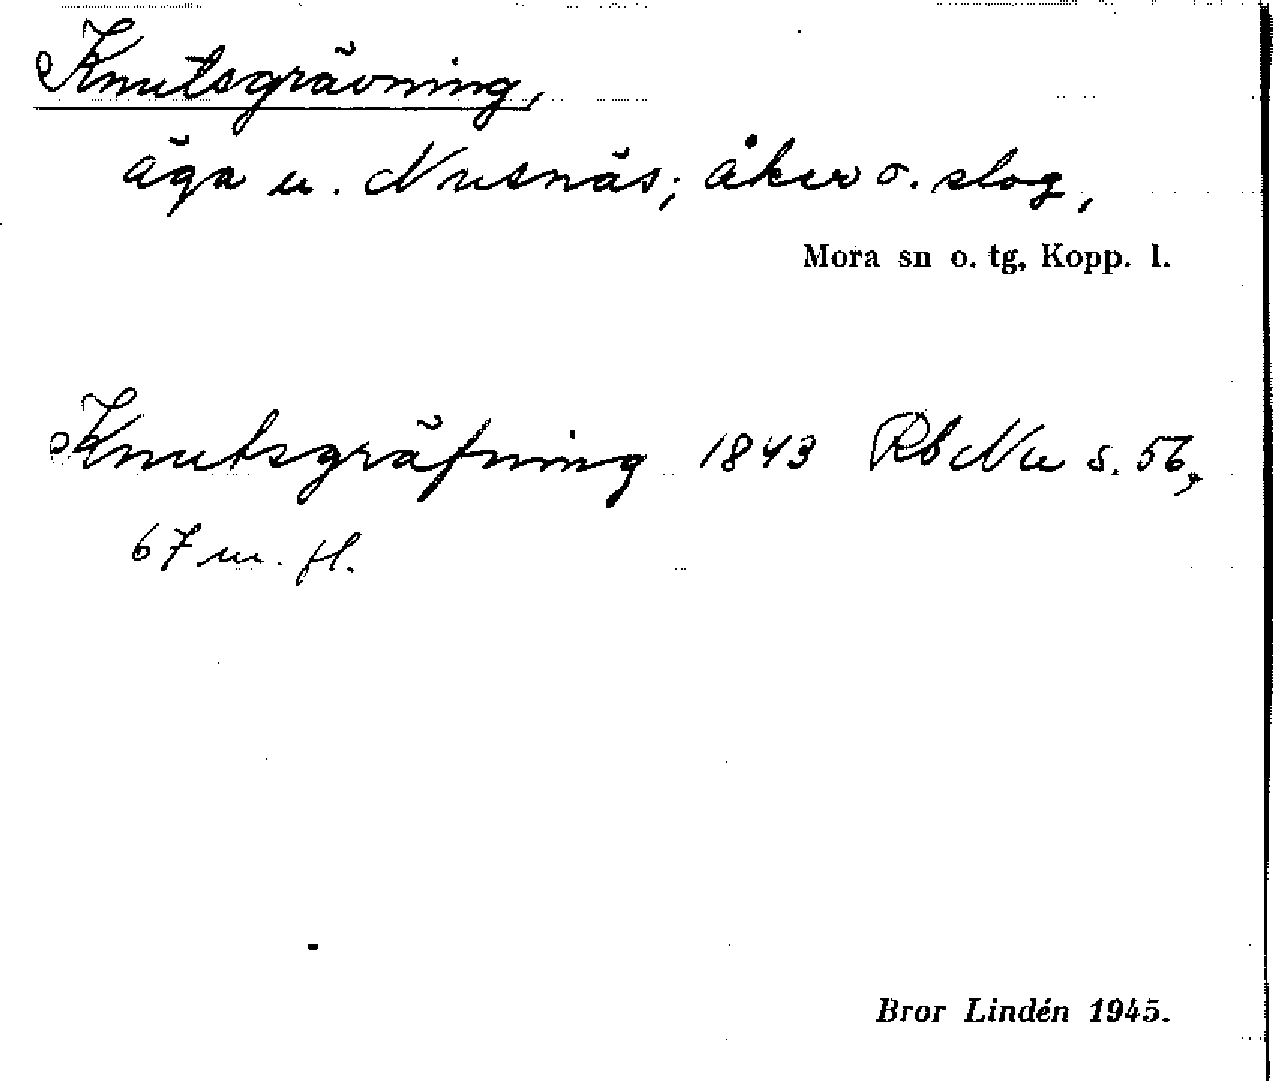 Knutsgrävning,
äga u. Nusnäs; åker o. slog,
Mora sn o. tg, Kopp. l.
Knutsgräfning 1843 RbNu s. 56,
67 m. fl.
Bror Lindén 1945.